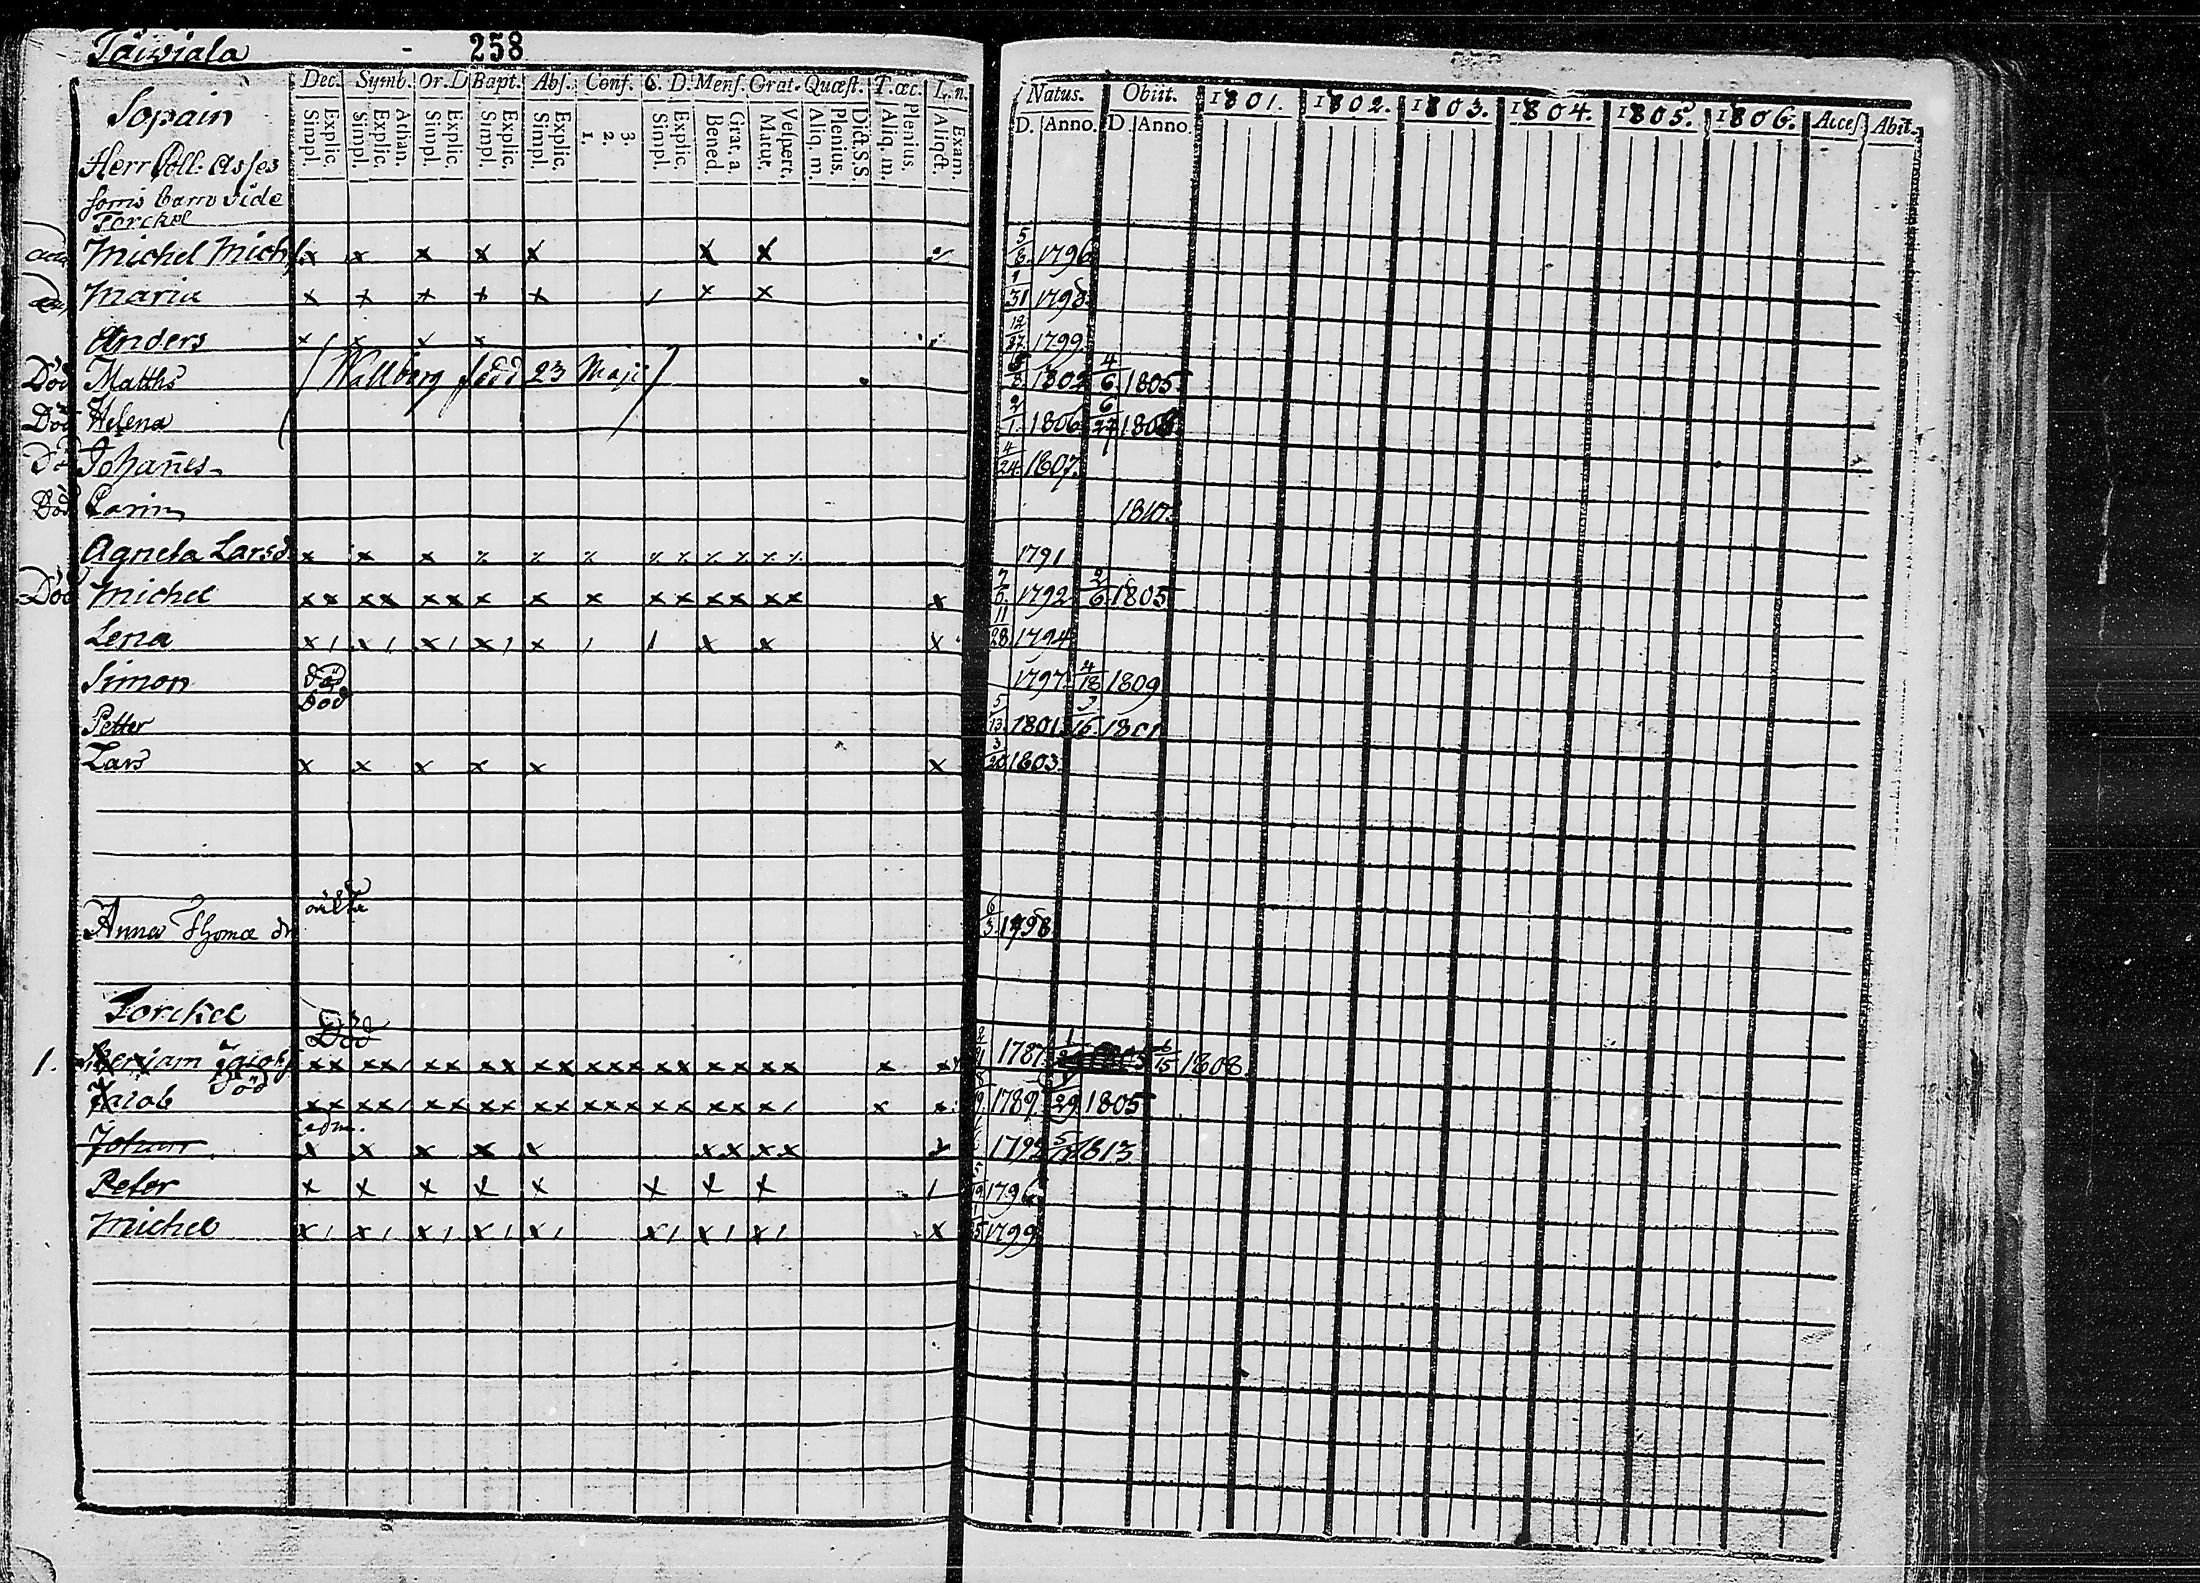 Taiwiala 258
Dec. Symb. Or. D Bapt. Abs. Conf. C. D. Mens. Grat. Quæst. T. œc. L. n.
Explic. Simpl. Athan. Explic. Simpl. Explic. Simpl. Explic. Simpl. Explic. Simpl. 3. 2. 1. Explic. Simpl. Grat. a. Bened. Vespert. Matut. Dict. S.S. Plenius. Aliq. m. Plenius. Aliq. m. Exam. Aliqct.
Natus. Obiit. 1801. 1802. 1803. 1804. 1805. 1806. Acces. Abit.
D. Anno. D. Anno.
Sopain
Herr Coll. Asses
sorris barn vide
Torckel
Michel Michs x x x x x x x 5/6 1796
Maria x x x x x / x x 1/31 1798
Anders x x x x 12/27 1799
Död Matths (Wallborg född 23 Maji) 1802 4/6 1805
Död Helena 2/1 1806 6/27 1806
Död Johañes 4/24 1807.
Död Carin 1810.
Agneta Larsd x x x 1791
Död Michel xx xx xx x x x xx xx xx x 7/6 1792 2/6 1805
Lena x/ x/ x/ x/ x / / x x x 11/28 1794
Simon död 1797 4/18 1809
Petter Död 5/13 1801 3/16 1801
Lars x x x x x x 3/20 1803.
Anna Thomæ dr 6/3 1798
Torckel
Död
1. 1787 6/15 1808
Jacob Död xx xx/ xx xx xx xxx xx xx x/ x x 1789 1/29 1805
Johan x x x x x xx xx 1813
Peter x x x x x x x x / 1796
Michel x/ x/ x/ x/ x/ x/ x/ x/ x 1799